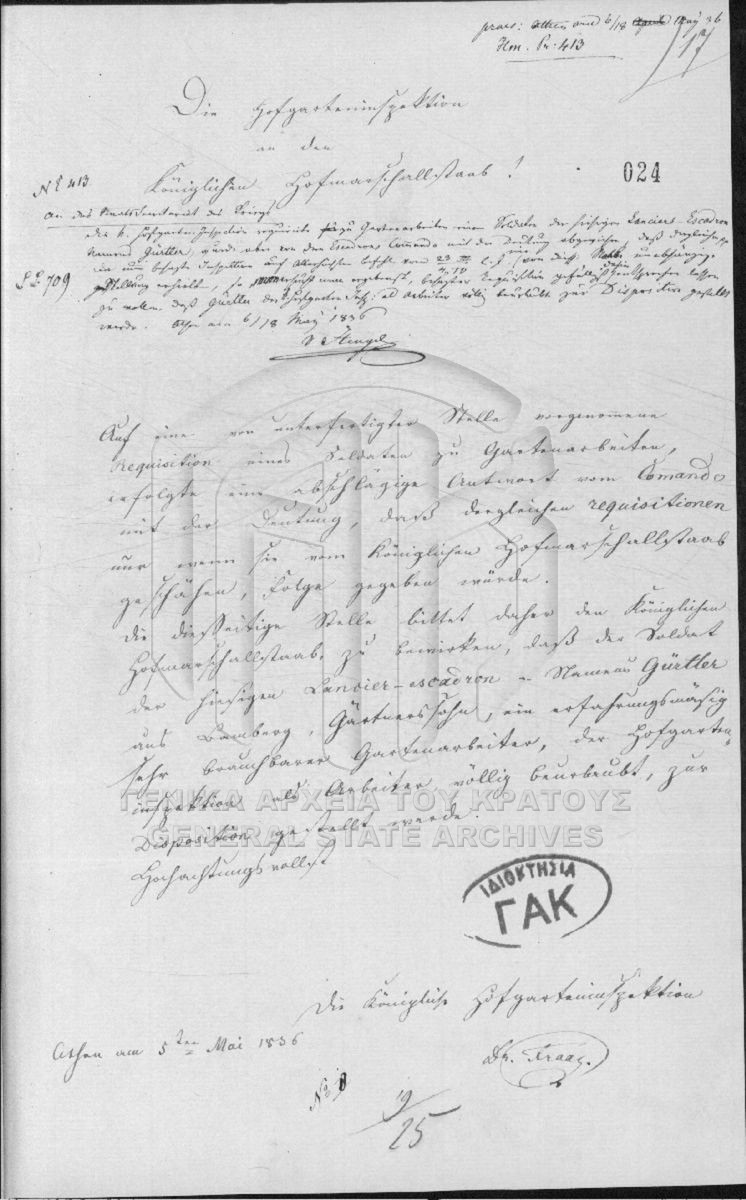 praes: Athen am 6/18 April May 36
Hm. Pr: 413
17
Die Hofgarteninspektion
an den
Königlichen Hofmarschallstaab!
024
No 413
An das Staatssekretariat des Kriegs
Die k. Hofgarten-Inspektion requirirte zu Gartenarbeiten einen Soldaten der hiesigen Lanciers-Escadron
Namens Gürtler, wurde aber von dem Escadrons Commando mit der Deutung abgewiesen, daß dergleichen
LL 709
werde. Athen am 6/18 May 1836
Auf eine von unterfertigter Stelle vorgenommene
Requisition eines Soldaten zu Gartenarbeiten,
erfolgte eine abschlägige Antwort vom Comando
mit der Deutung, daß dergleichen requisitionen
nur wenn sie vom Königlichen Hofmarschallstaab
geschähen, Folge gegeben würde.
Die diesseitige Stelle bittet daher den Königlichen
Hofmarschallstaab, zu bewirken, daß der Soldat
der hiesigen Lancier-escadron – Namens Gürtler
aus Bamberg, Gärtnerssohn, ein erfahrungsmäsig
sehr brauchbarer Gartenarbeiter, der Hofgarten-
inspektion als Arbeiter völlig beurlaubt, zur
Disposition gestellt werde.
Hochachtungsvollst
ΓΕΝΙΚΑ ΑΡΧΕΙΑ ΤΟΥ ΚΡΑΤΟΥΣ
GENERAL STATE ARCHIVES
ΙΔΙΟΚΤΗΣΙΑ
ΓΑΚ
Die Königliche Hofgarteninspektion
Athen am 5ten Mai 1836
Dr. Fraas.
No 8
19/25